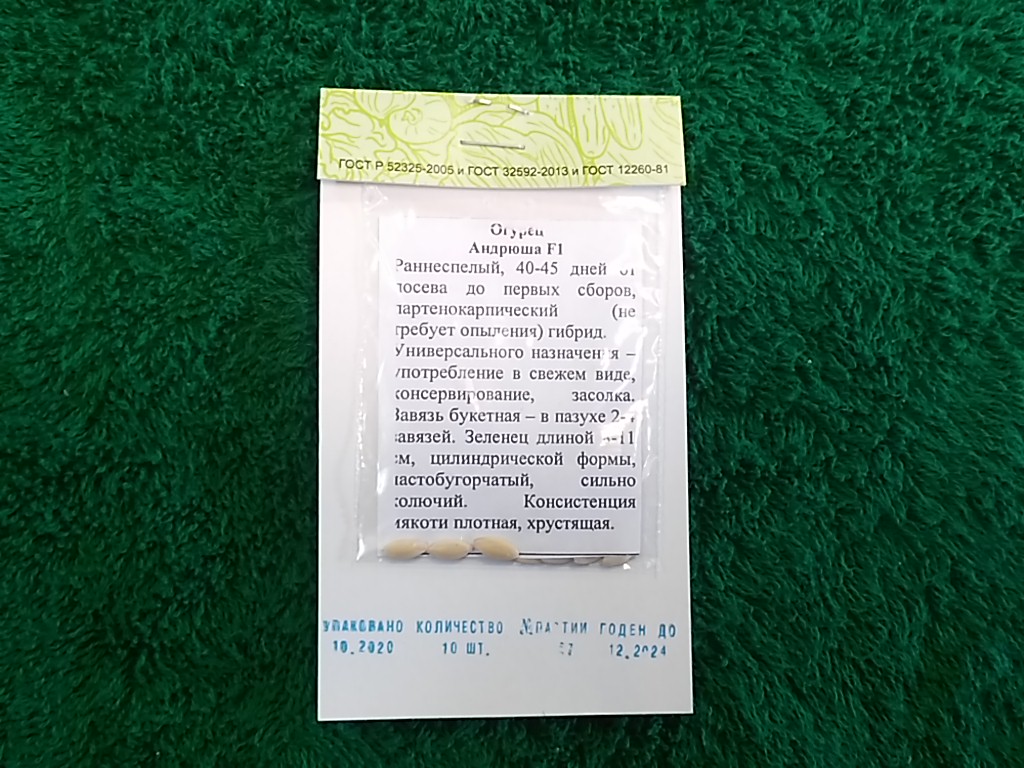 ГОСТ Р 52325-2005 и ГОСТ 32592-2013 и ГОСТ 12260-81
Огурец
Андрюша F1
Раннеспелый, 40-45 дней от
посева до первых сборов,
партенокарпический (не
требует опыления) гибрид.
Универсального назначения –
употребление в свежем виде,
консервирование, засолка.
Завязь букетная – в пазухе
завязей. Зеленец длиной
см, цилиндрической формы,
частобугорчатый, сильно
колючий. Консистенция
мякоти плотная, хрустящая.
УПАКОВАНО КОЛИЧЕСТВО №ПАРТИИ ГОДЕН ДО
10.2020 10 ШТ. 12.2024